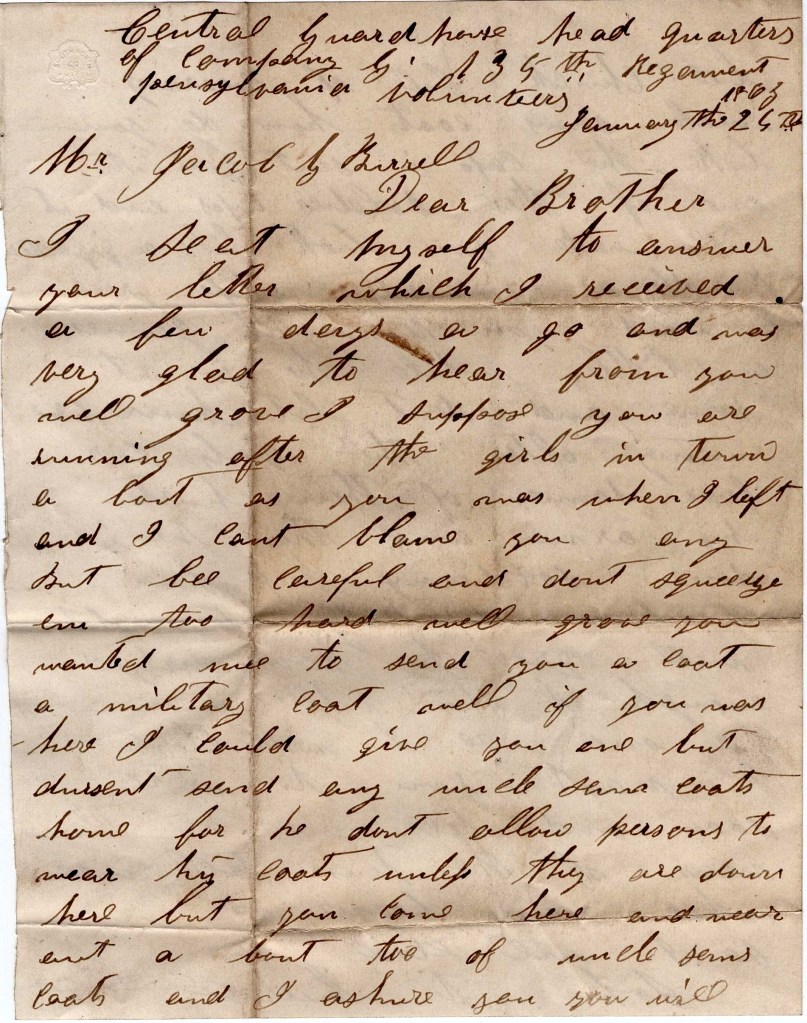 Central Guard house head quarters
of Company G. 135th Regament
pensylvania volunteers
1863
January the 26th
Mr Jacob G Burrell
Dear Brother
I seat myself to answer
your letter which I received
a few days a go and was
very glad to hear from you
well grove I suppose you are
running after the girls in town
a bout as you was when I left
and I cant blame you any
But bee careful and dont squeege
em too hard well grove you
wanted mee to send you a coat
a military coat well if you was
here I could give you one but
dursent send any uncle sems coats
home for he dont allow persons to
wear his coats unless they are down
here but you come here and wear
out a bout too of uncle sems
coats and I ashure you you will